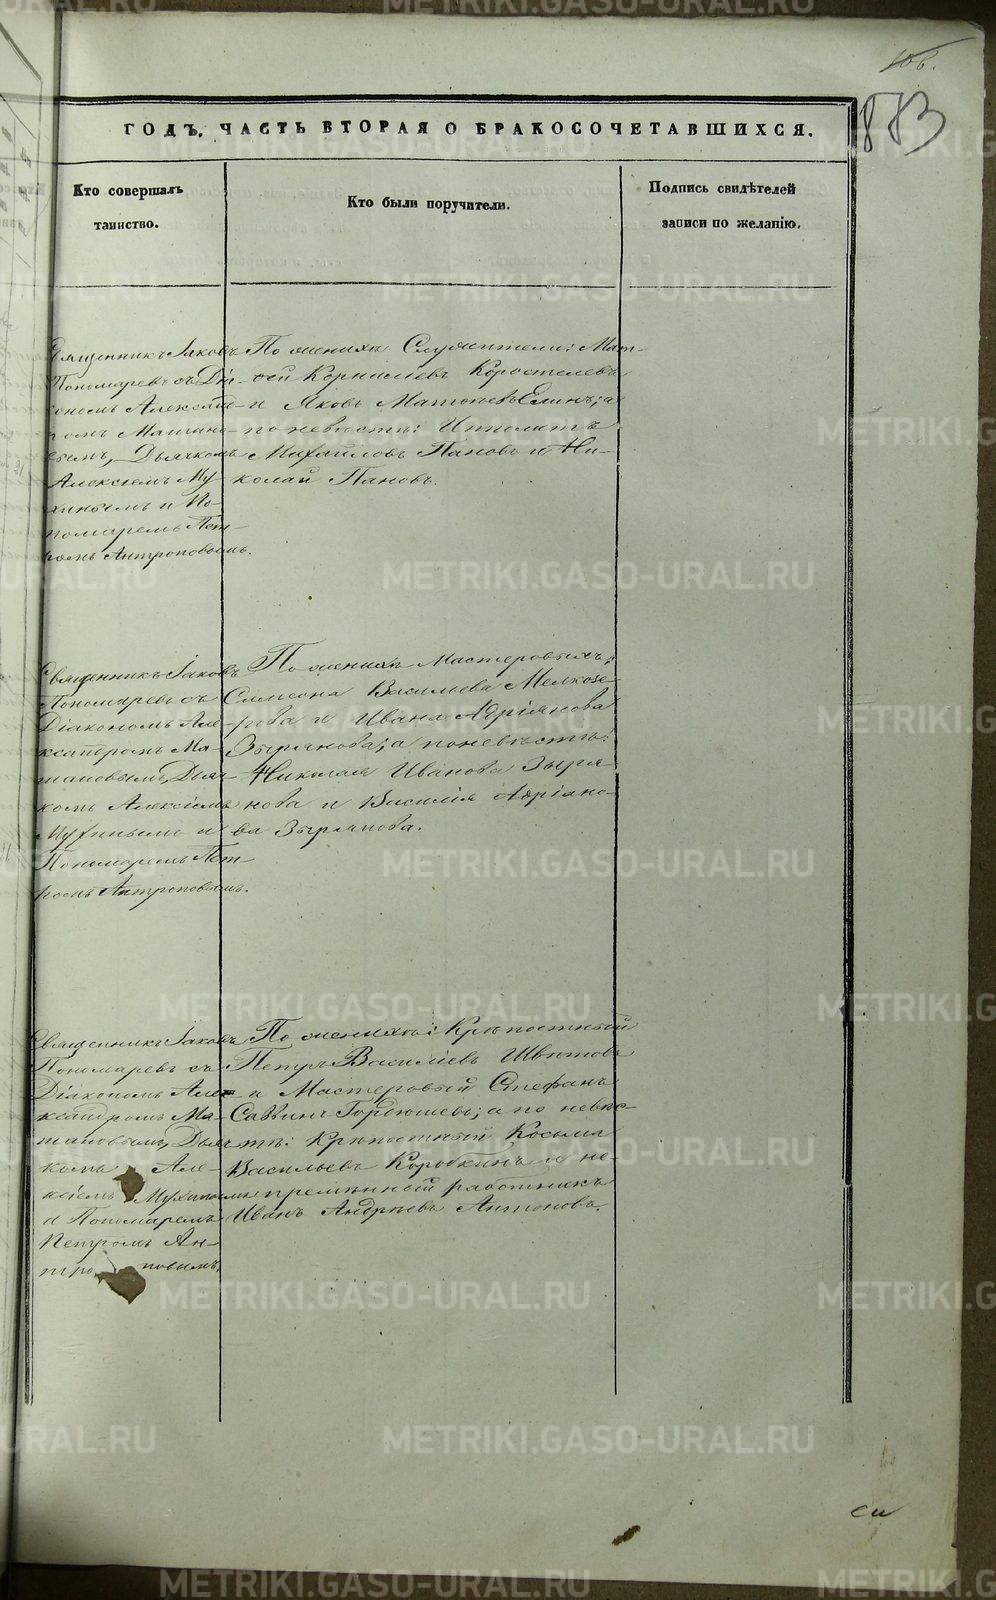 106.
883
ГОДЪ. ЧАСТЬ ВТОРАЯ О БРАКОСОЧЕТАВШИХСЯ.
Кто совершалъ
таинство.
Кто были поручители.
Подпись свидѣтелей
записи по желанію.
Священникъ Іаковъ
Пономаревъ съ Діа-
кономъ Александ-
ромъ Матано-
вымъ, Дьячкомъ
Алексіемъ Му-
хинымъ и По-
номаремъ Пет-
ромъ Антроповымъ.
По женихѣ Служители: Мат-
ѳей Корниліевъ Коростелевъ
и Яковъ Матѳеевъ Елинъ; а
по невѣстѣ: Ипполитъ
Михайловъ Пановъ и Ни-
колай Пановъ.
Священникъ Іаковъ
Пономаревъ съ
Діакономъ Але-
ксандромъ Ма-
тановымъ, Дьяч-
комъ Алексіемъ
Мухинымъ и
Пономаремъ Пет-
ромъ Антроповымъ.
По женихѣ Мастеровыхъ:
Симеона Васильева Мелкозе-
рова и Ивана Адріянова
Зырянова; а по невѣстѣ:
Николая Иванова Зыря-
нова и Василія Адріяно-
ва Зырянова.
Священникъ Іаковъ
Пономаревъ съ
Діакономъ Алек-
ксандромъ Ма-
тановымъ, Дьяч-
комъ Але-
ксіемъ Мухинымъ
и Пономаремъ
Петромъ Ан-
тро повымъ.
По женихѣ: Крѣпостный
Петръ Василіевъ Швѣтовъ
и Мастеровый Стефанъ
Саввинъ Гордюшевъ; а по невѣс-
тѣ: Крѣпостный Косьма
Васильевъ Коробкинъ и не-
премѣнный работникъ
Иванъ Андрѣевъ Антоновъ.
METRIKI.GASO-URAL.RU